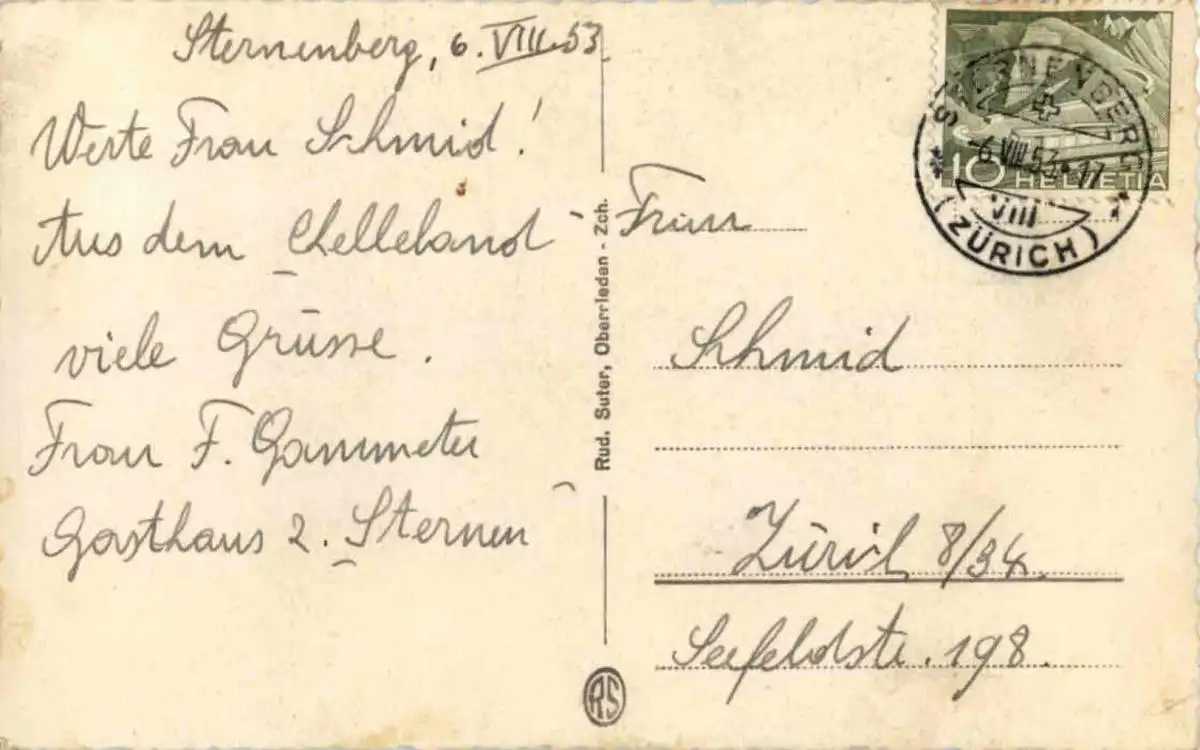 Sternenberg, 6. VIII. 53
Werte Frau Schmid!
Aus dem Chelleland
viele Grüsse.
Frau F. Gammeter
Gasthaus z. Sternen
Rud. Suter, Oberrieden - Zch.
RS
STERNENBERG
6.VIII.53.17
VIII
(ZÜRICH)
10 HELVETIA
Frau
Schmid
Zürich 8/34.
Seefeldstr. 198.